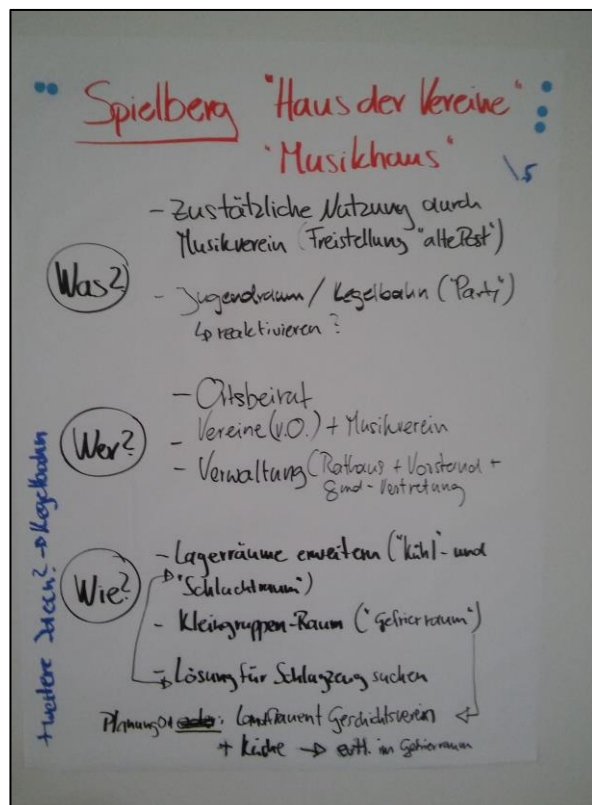 Spielberg "Haus der Vereine"
"Musikhaus"
\5
- Zustätzliche Nutzung durch
Musikverein (Freistellung "alte Post")
Was?
- Jugendraum / Kegelbahn ("Party")
↳ reaktivieren?
- Ortsbeirat
Wer?
- Vereine (v.O.) + Musikverein
- Verwaltung (Rathaus + Vorstand +
Gmd-Vertretung
- Lagerräume erweitern ("Kühl"- und
"Schlachtraum")
Wie?
- Kleingruppen-Raum ("Gefrierraum")
- Lösung für Schlagzeug suchen
Planung : Geschichtsverein
+ Küche → evtl. im Gefrierraum
+ weitere Ideen? → Kegelbahn